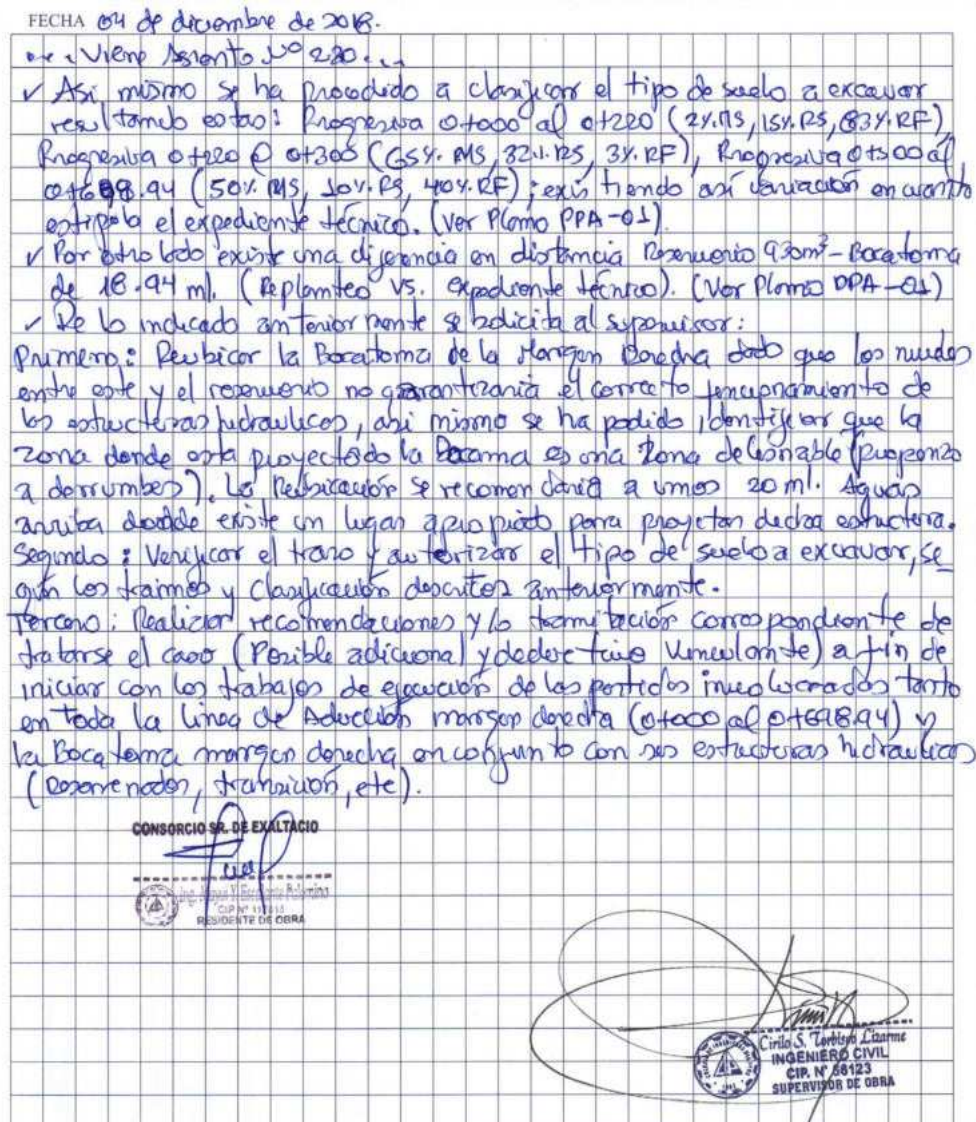 FECHA 04 de diciembre de 2018.
... Viene Asiento Nº 220...
✓ Asi mismo se ha Procedido a clasificar el tipo de suelo a excavar
resultando estas: Progresiva 0+000 al 0+220 (2%.MS, 15%.RS, 83%.RF),
Progresiva 0+220 @ 0+300 (65%. MS, 32%. RS, 3%. RF), Progresiva 0+300 al
0+698.94 (50%. MS, 10%. RS, 40%. RF); existiendo asi variación en cuanto
estipula el expediente técnico. (Ver Plano PPA-01)
✓ Por otro lado existe una diferencia en distancia Reservorio 930m³-Bocatoma
de 18.94 ml. (Replanteo vs. expediente técnico). (Ver Plano PPA-01)
✓ De lo indicado anteriormente se solicita al supervisor:
Primero: Reubicar la Bocatoma de la Margen Derecha dado que los niveles
entre este y el reservorio no garantizaria el correcto funcionamiento de
las estructuras hidraulicas, asi mismo se ha podido identificar que la
zona donde esta proyectado la Bocama es una zona deleznable (propenso
a derrumbes). La Reubicación se recomendaria a unos 20 ml. Aguas
arriba donde existe un lugar apropiado para proyectar dicha estructura.
Segundo: Verificar el trazo y autorizar el tipo de suelo a excavar, se_
gún los tramos y Clasificación descritos anteriormente.
Tercero: Realizar recomendaciones y/o tramitación correspondiente de
tratarse el caso (Posible adicional y deductivo Vinculante) a fin de
iniciar con los trabajos de ejecución de las partidas involucradas tanto
en toda la linea de Aducción margen derecha (0+000 al 0+698.94) y
la Bocatoma margen derecha en conjunto con sus estructuras hidraulicas
(Desarenador, transición, etc).
CONSORCIO SR. DE EXALTACIO
Ing. Y. Escalante Palomino
CIP Nº
RESIDENTE DE OBRA
Cirilo S. Lizarme
INGENIERO CIVIL
CIP. Nº 56123
SUPERVISOR DE OBRA